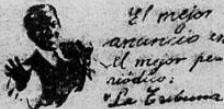 El mejor
anuncio en
el mejor pe
riódico:
"La Tribuna